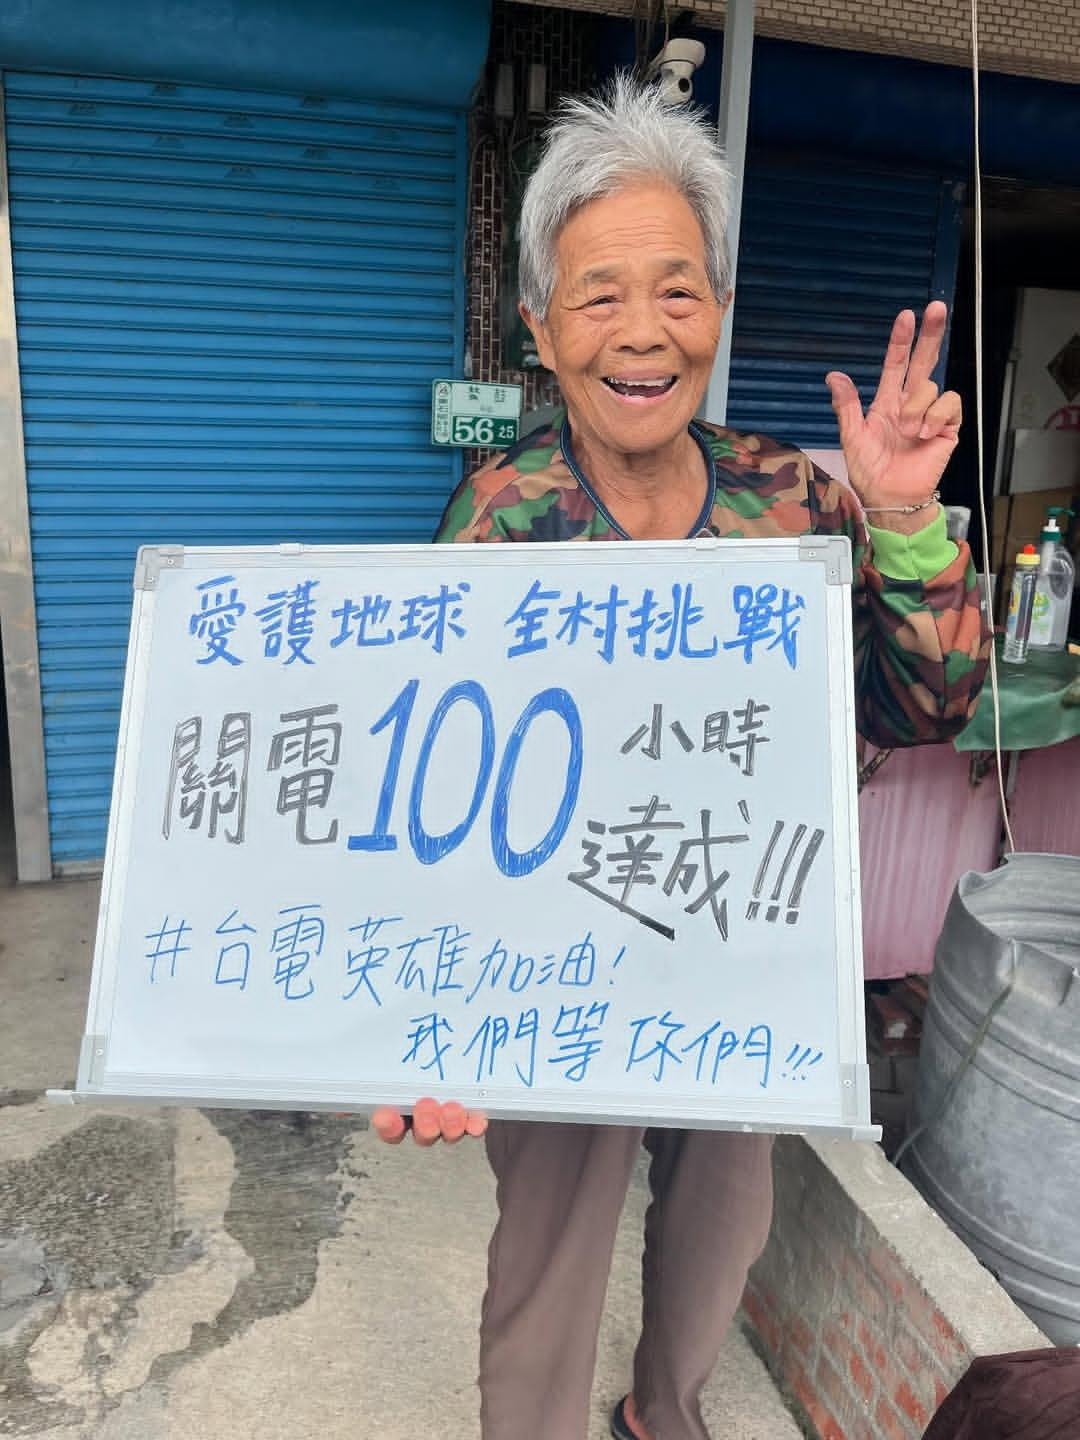 愛護地球 全村挑戰
關電100小時
達成!!!
#台電英雄加油!
我們等你們!!!
56 25